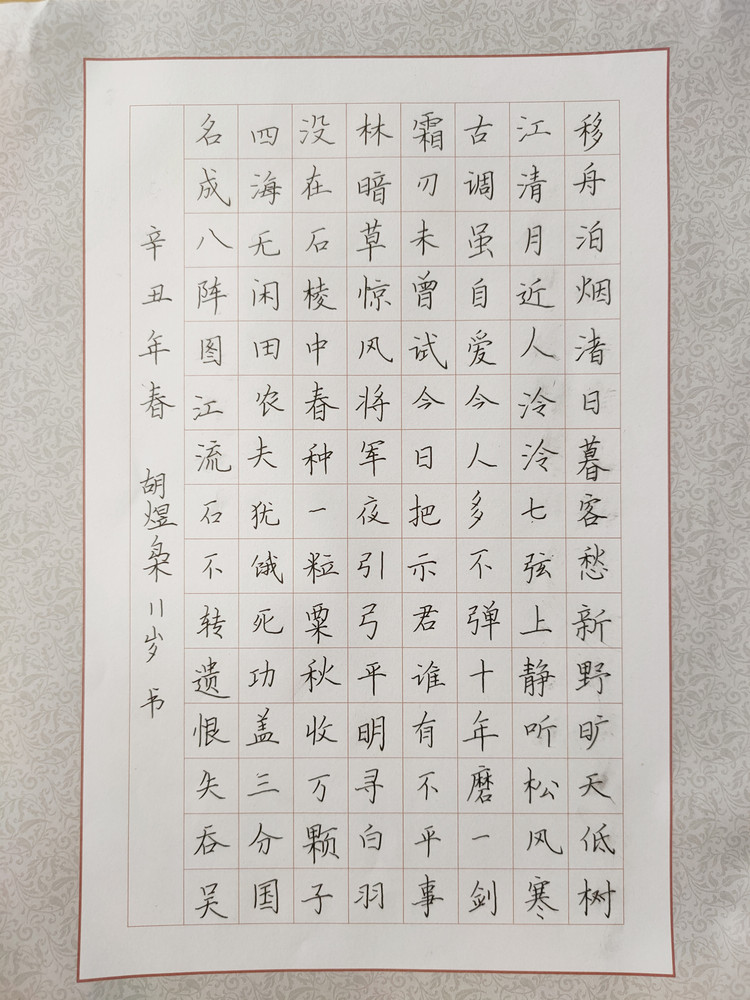 移舟泊烟渚日暮客愁新野旷天低树
江清月近人泠泠七弦上静听松风寒
古调虽自爱今人多不弹十年磨一剑
霜刃未曾试今日把示君谁有不平事
林暗草惊风将军夜引弓平明寻白羽
没在石棱中春种一粒粟秋收万颗子
四海无闲田农夫犹饿死功盖三分国
名成八阵图江流石不转遗恨失吞吴
辛丑年春 胡煜枭11岁书